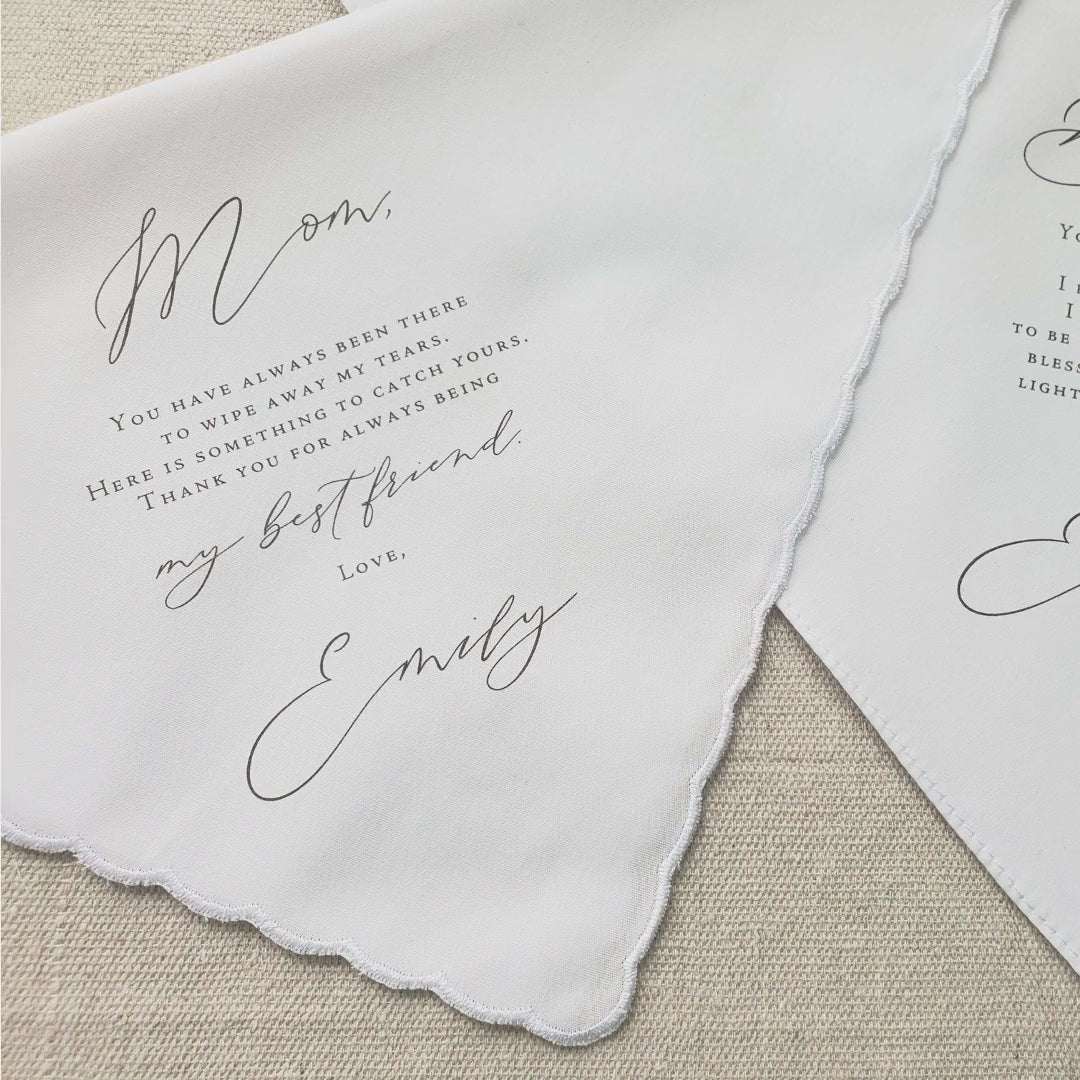 Mom,
You have always been there
to wipe away my tears.
Here is something to catch yours.
Thank you for always being
my best friend.
Love,
Emily
I
to be
light